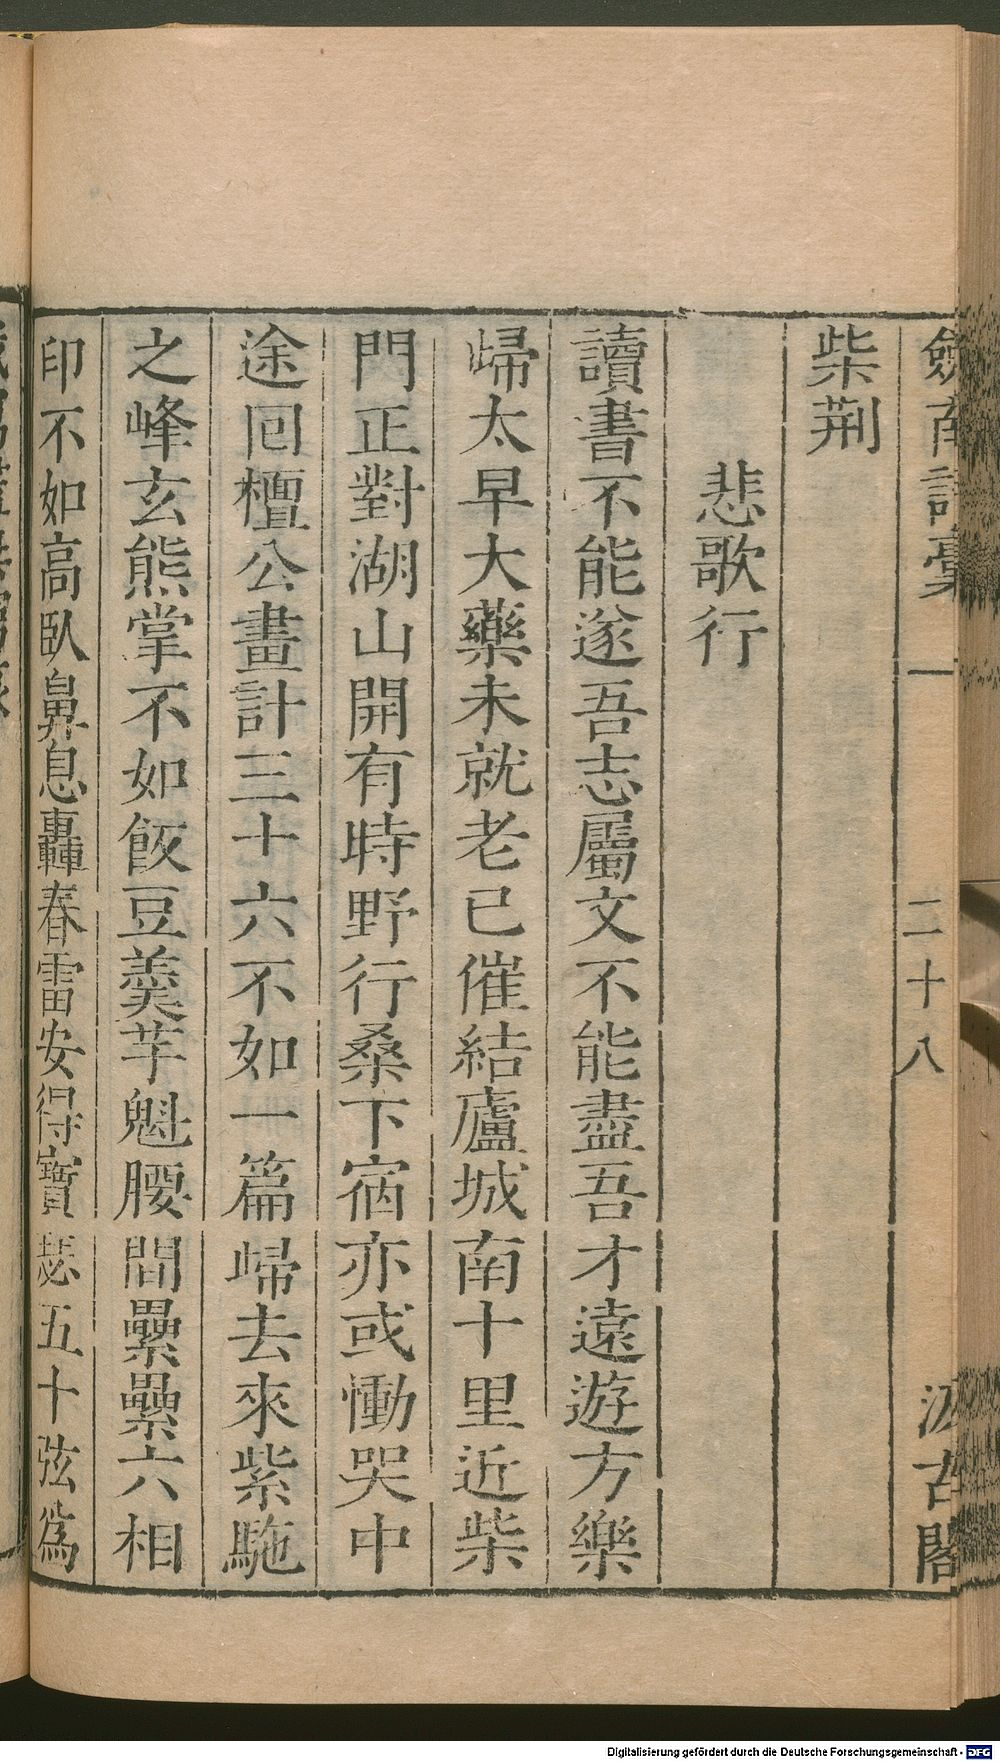 劍南詩稾 一 二十八 汲古閣
柴荆
悲歌行
讀書不能遂吾志屬文不能盡吾才遠遊方樂
歸太早大藥未就老已催結廬城南十里近柴
門正對湖山開有時野行桑下宿亦或慟哭中
途回檀公畫計三十六不如一篇歸去來紫駞
之峰玄熊掌不如飯豆羹芋魁腰間纍纍六相
印不如高臥鼻息轟春雷安得寶瑟五十弦爲
Digitalisierung gefördert durch die Deutsche Forschungsgemeinschaft - DFG